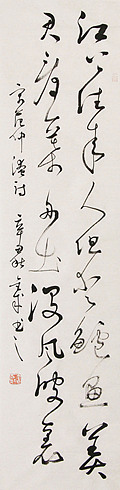 江上往来人但爱鲈鱼美
君看一叶舟出没风波里
宋范仲淹诗 辛丑秋 书之